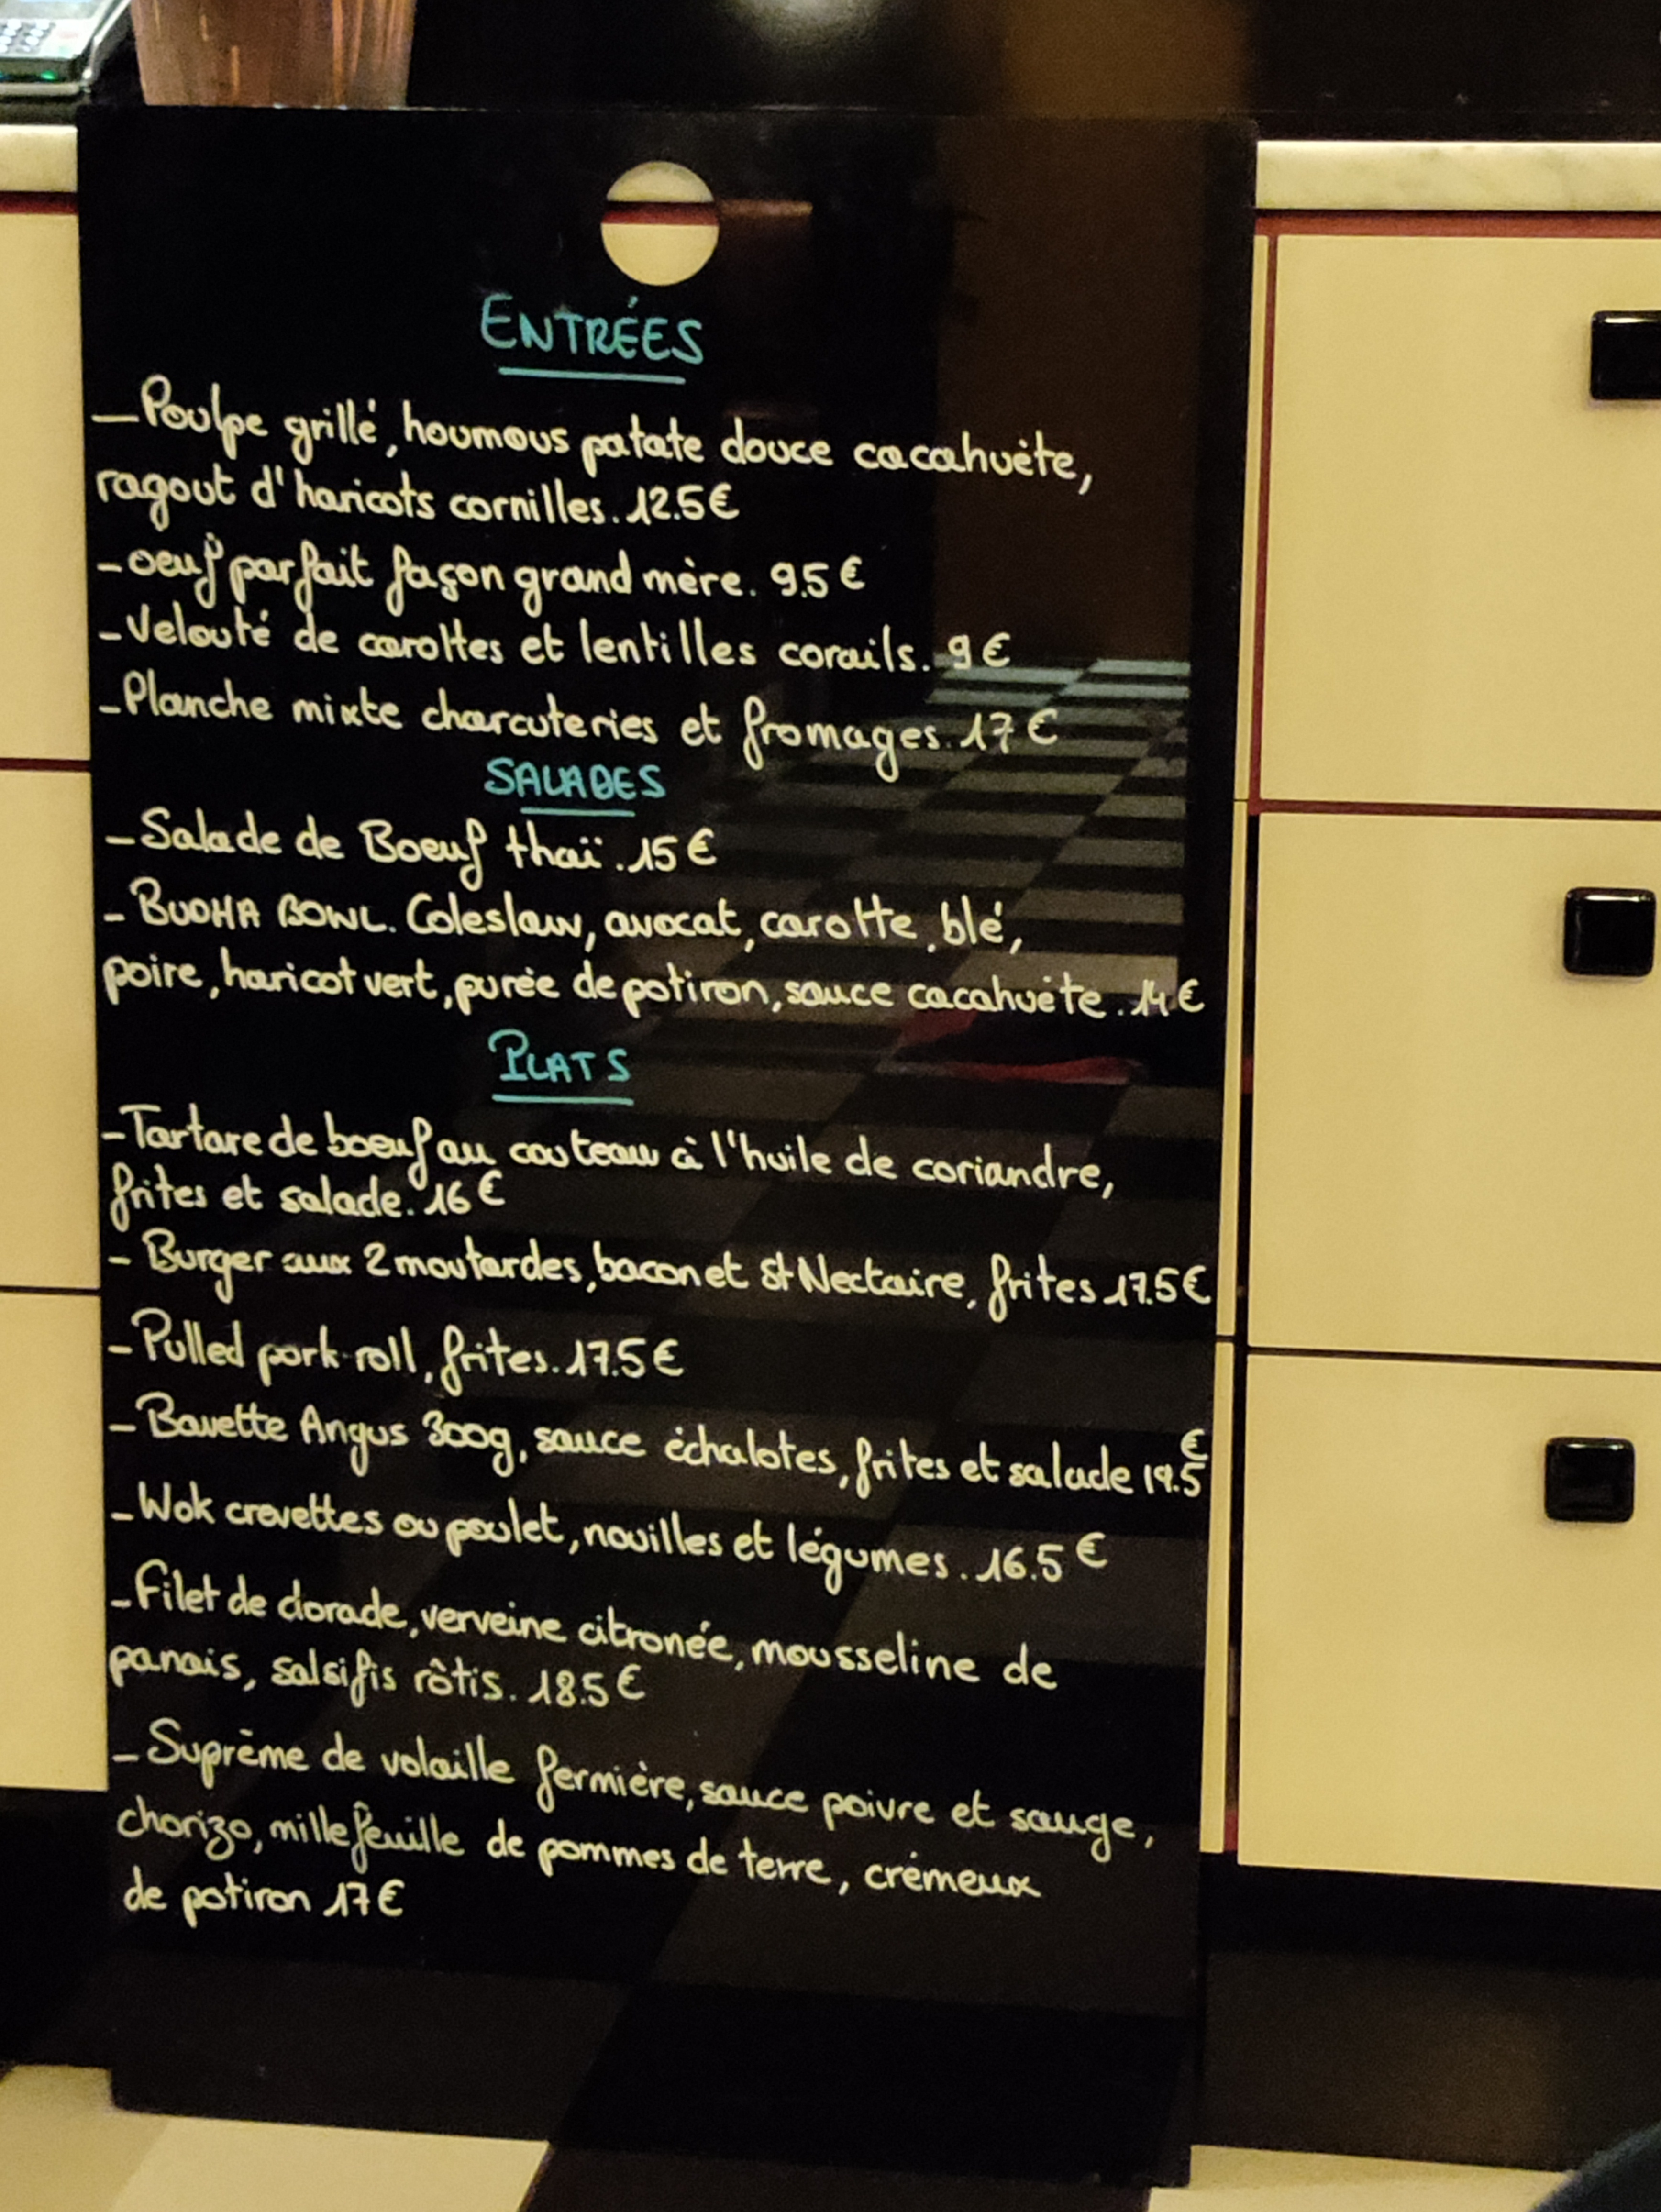 ENTRÉES
– Poulpe grillé, houmous patate douce cacahuète,
ragout d'haricots cornilles. 12.5€
– oeuf parfait façon grand mère. 9.5€
– Velouté de carottes et lentilles corails. 9€
– Planche mixte charcuteries et fromages. 17€
SALADES
– Salade de Boeuf thaï. 15€
– BUDHA BOWL. Coleslaw, avocat, carotte, blé,
poire, haricot vert, purée de potiron, sauce cacahuète. 14€
PLATS
– Tartare de boeuf au couteau à l'huile de coriandre,
frites et salade. 16€
– Burger aux 2 moutardes, bacon et St Nectaire, frites 17.5€
– Pulled pork roll, frites. 17.5€
– Bavette Angus 300g, sauce échalotes, frites et salade 19.5€
– Wok crevettes ou poulet, nouilles et légumes. 16.5€
– Filet de dorade, verveine citronée, mousseline de
panais, salsifis rôtis. 18.5€
– Suprême de volaille fermière, sauce poivre et sauge,
chorizo, millefeuille de pommes de terre, crémeux
de potiron 17€